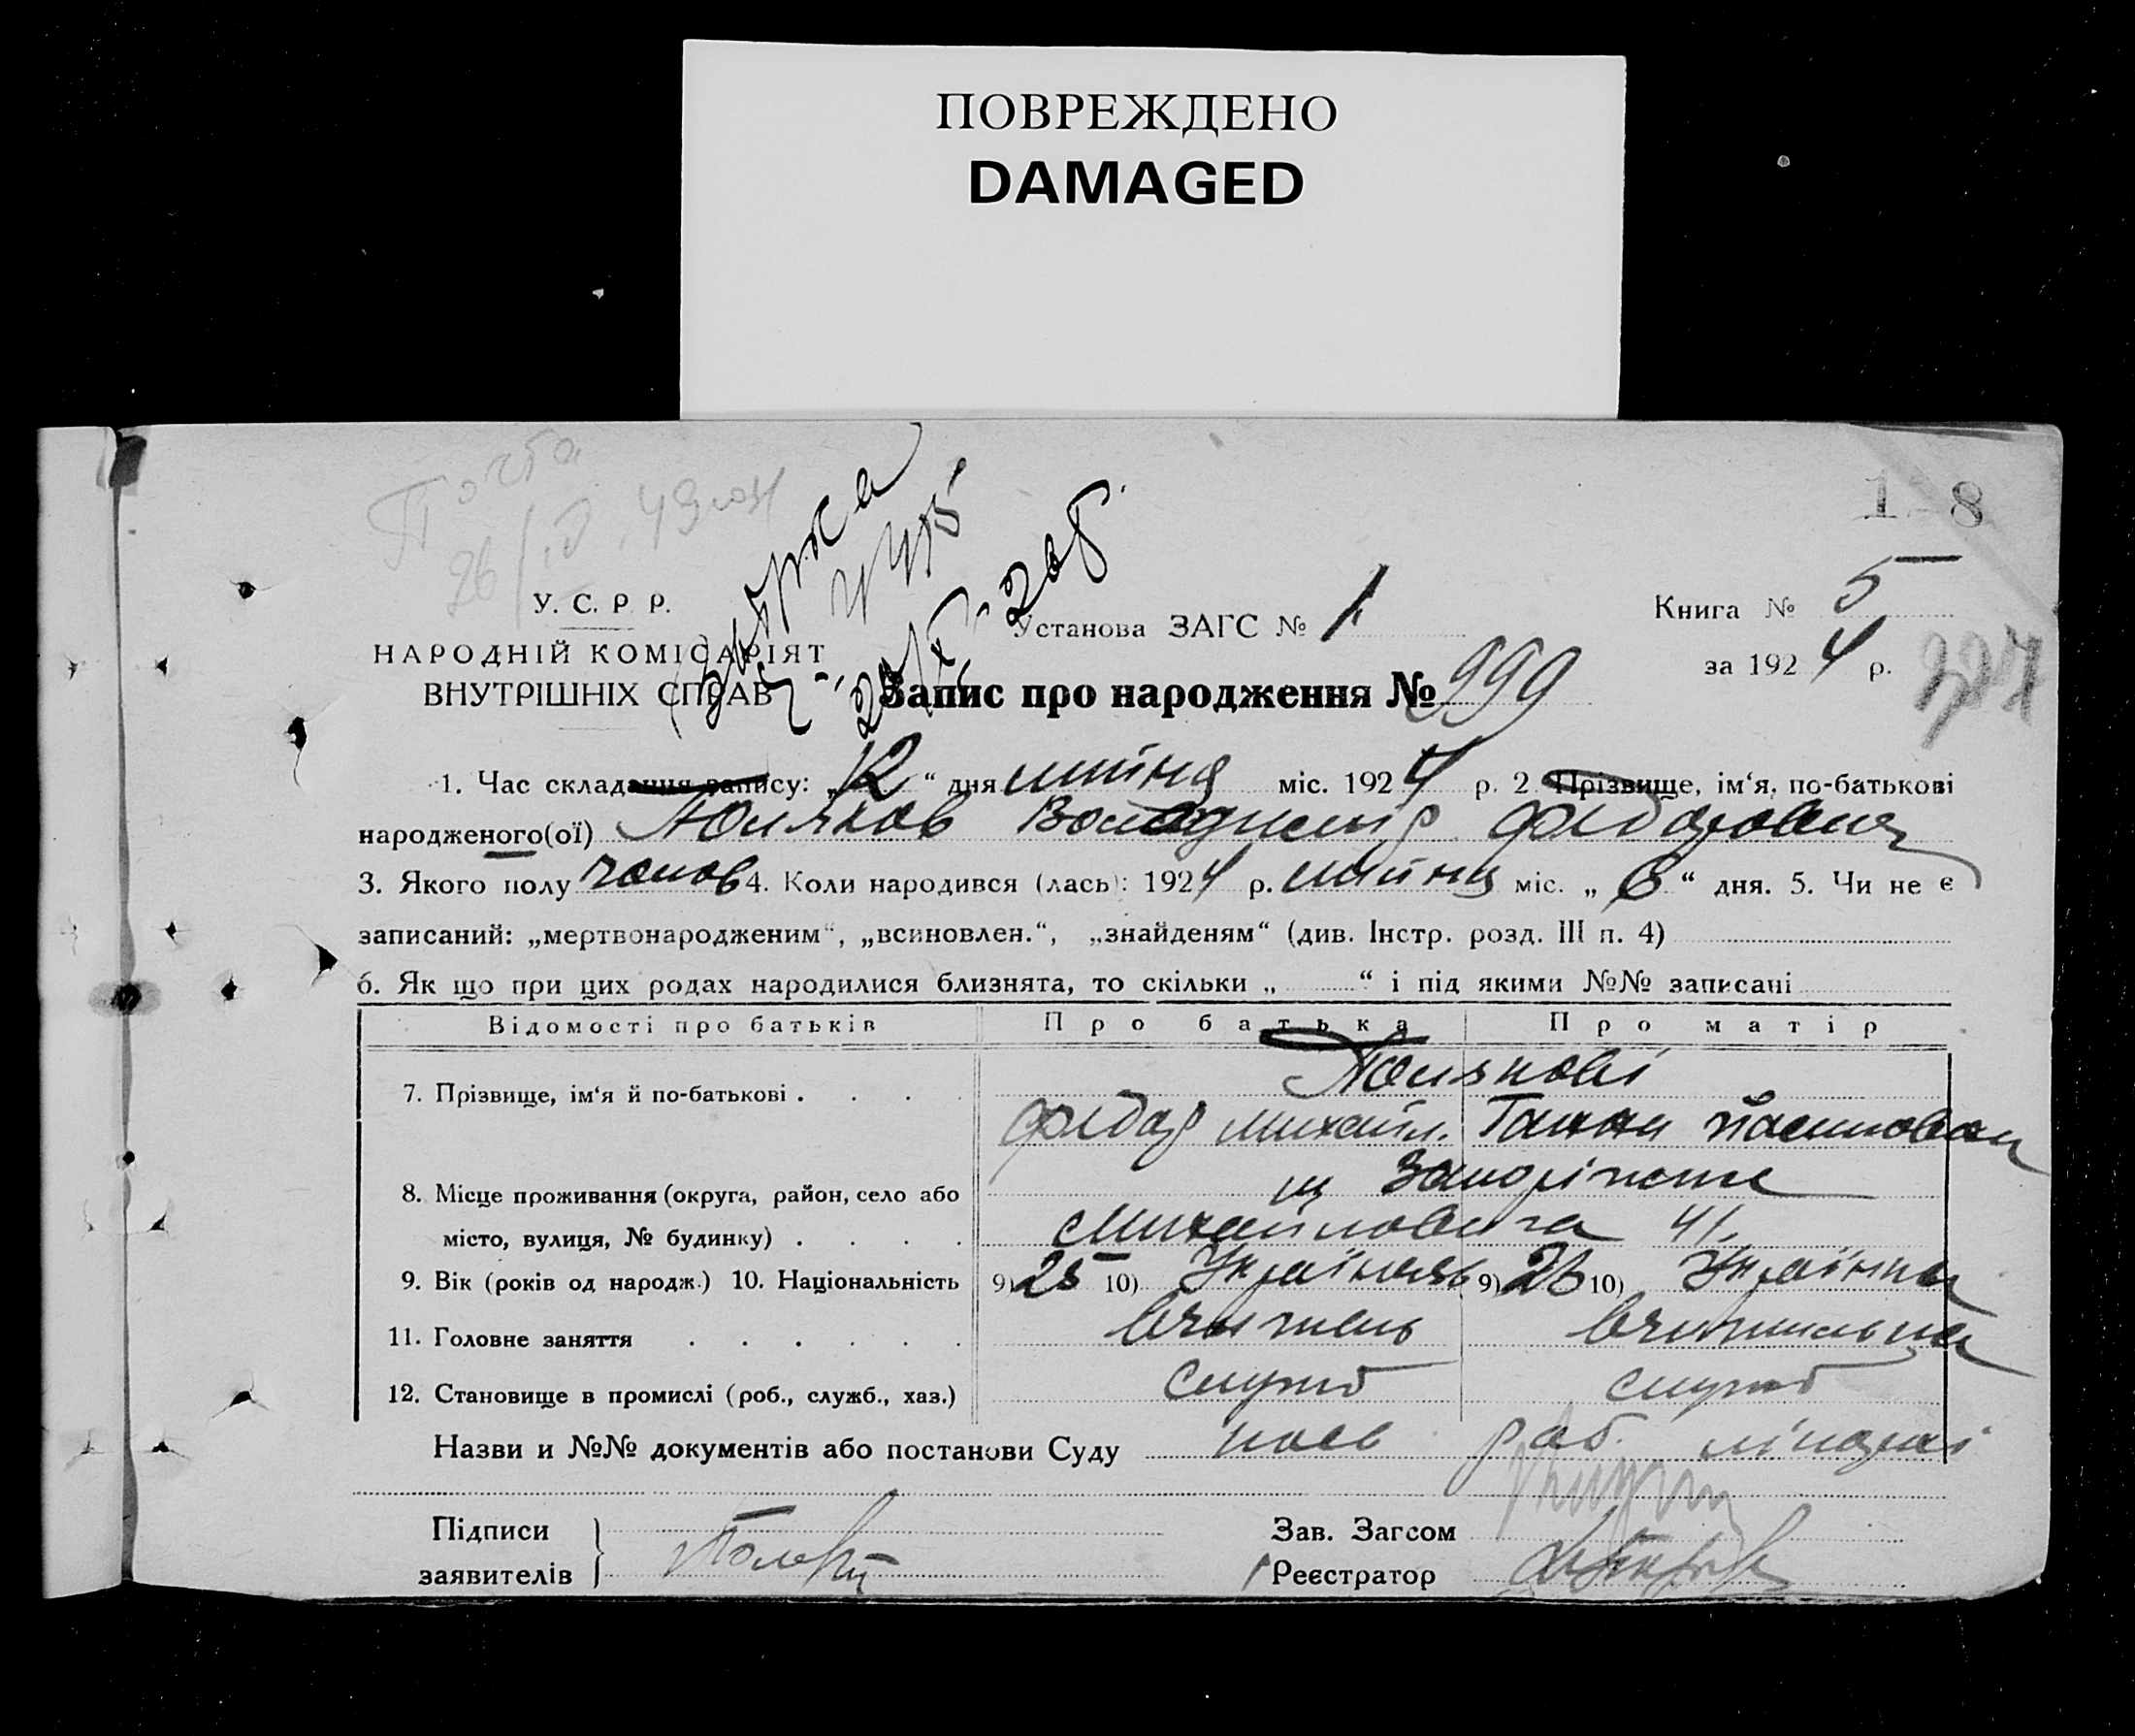 ПОВРЕЖДЕНО
DAMAGED
1 8
У. С. Р Р.
НАРОДНІЙ КОМІСАРІЯТ
ВНУТРІШНІХ СПРАВ
Установа ЗАГС № 1
Книга № 5
за 1924 р.
Запис про народження № 999
1. Час складання запису: „12“ дня липня міс. 1924 р. 2 Прізвище, ім‘я, по-батькові
народженого(ої) Поляков Володимир Федорович
3. Якого полу чолов 4. Коли народився (лась): 1924 р. липня міс. „6“ дня. 5. Чи не є
записаний: „мертвонародженим“, „всиновлен.“, „знайденям“ (див. Інстр. розд. III п. 4)
6. Як що при цих родах народилися близнята, то скільки „ “ і під якими №№ записані
Відомості про батьків Про батька Про матір
7. Прізвище, ім‘я й по-батькові . . . . Полякові
Федор Михайл. Ганна
8. Місце проживання (округа, район, село або м Запоріжжє
місто, вулиця, № будинку) . . . . Михайловича 41.
9. Вік (років од народж.) 10. Національність 9) 25 10) Українець 9) 26 10) Українка
11. Головне заняття . . . . . . вчитель вчителька
12. Становище в промислі (роб., служб., хаз.) служб служб
Назви и №№ документів або постанови Суду посв раб.
Підписи
заявителів
Зав. Загсом
Реєстратор